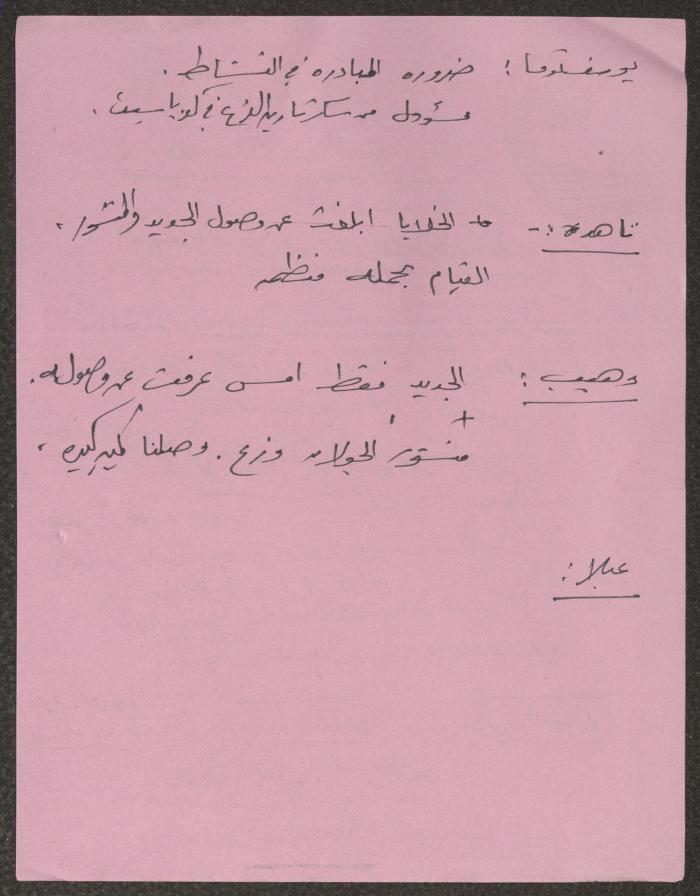 يوسف توما: ضروره المبادره في النشاط.
مسؤول من سكرتاريه الفرع في كل باسيت.
ناهده:- * الخلايا ابلغت عن وصول الجديد والمنشور.
القيام بحمله منظمه
وهيب: الجديد فقط امس عرفت عن وصوله.
+
منشور الجولان وزع. وصلنا كميه كبيره.
عبلا: